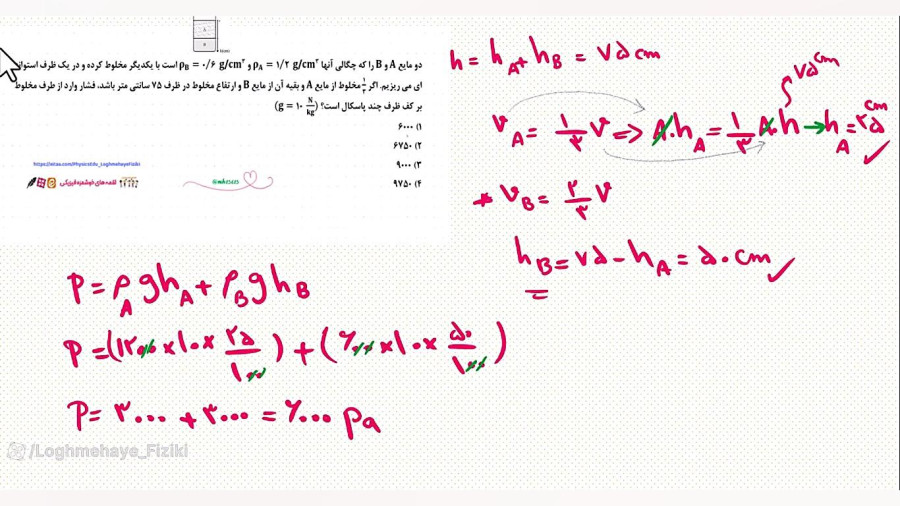 دو مایع A و B را که چگالی آنها ρA = ۱/۲ g/cm³ و ρB = ۰/۶ g/cm³ است با یکدیگر مخلوط کرده و در یک ظرف استوانه
ای می ریزیم. اگر ۱/۳ مخلوط از مایع A و بقیه آن از مایع B و ارتفاع مخلوط در ظرف ۷۵ سانتی متر باشد، فشار وارد از طرف مخلوط
بر کف ظرف چند پاسکال است؟ (g = ۱۰ N/kg)
۱) ۶۰۰۰
۲) ۶۷۵۰
۳) ۹۰۰۰
۴) ۹۷۵۰
لقمه های خوشمزه فیزیکی
h = hA + hB = ۷۵ cm
VA = ۱/۳ V => A.hA = ۱/۳ A.h → hA = ۲۵ cm
۷۵ cm
* VB = ۲/۳ V
hB = ۷۵ - hA = ۵۰ cm
P = ρA g hA + ρB g hB
P = (۱۲۰۰ × ۱۰ × ۲۵/۱۰۰) + (۶۰۰ × ۱۰ × ۵۰/۱۰۰)
P = ۳۰۰۰ + ۳۰۰۰ = ۶۰۰۰ Pa
/Loghmehaye_Fiziki